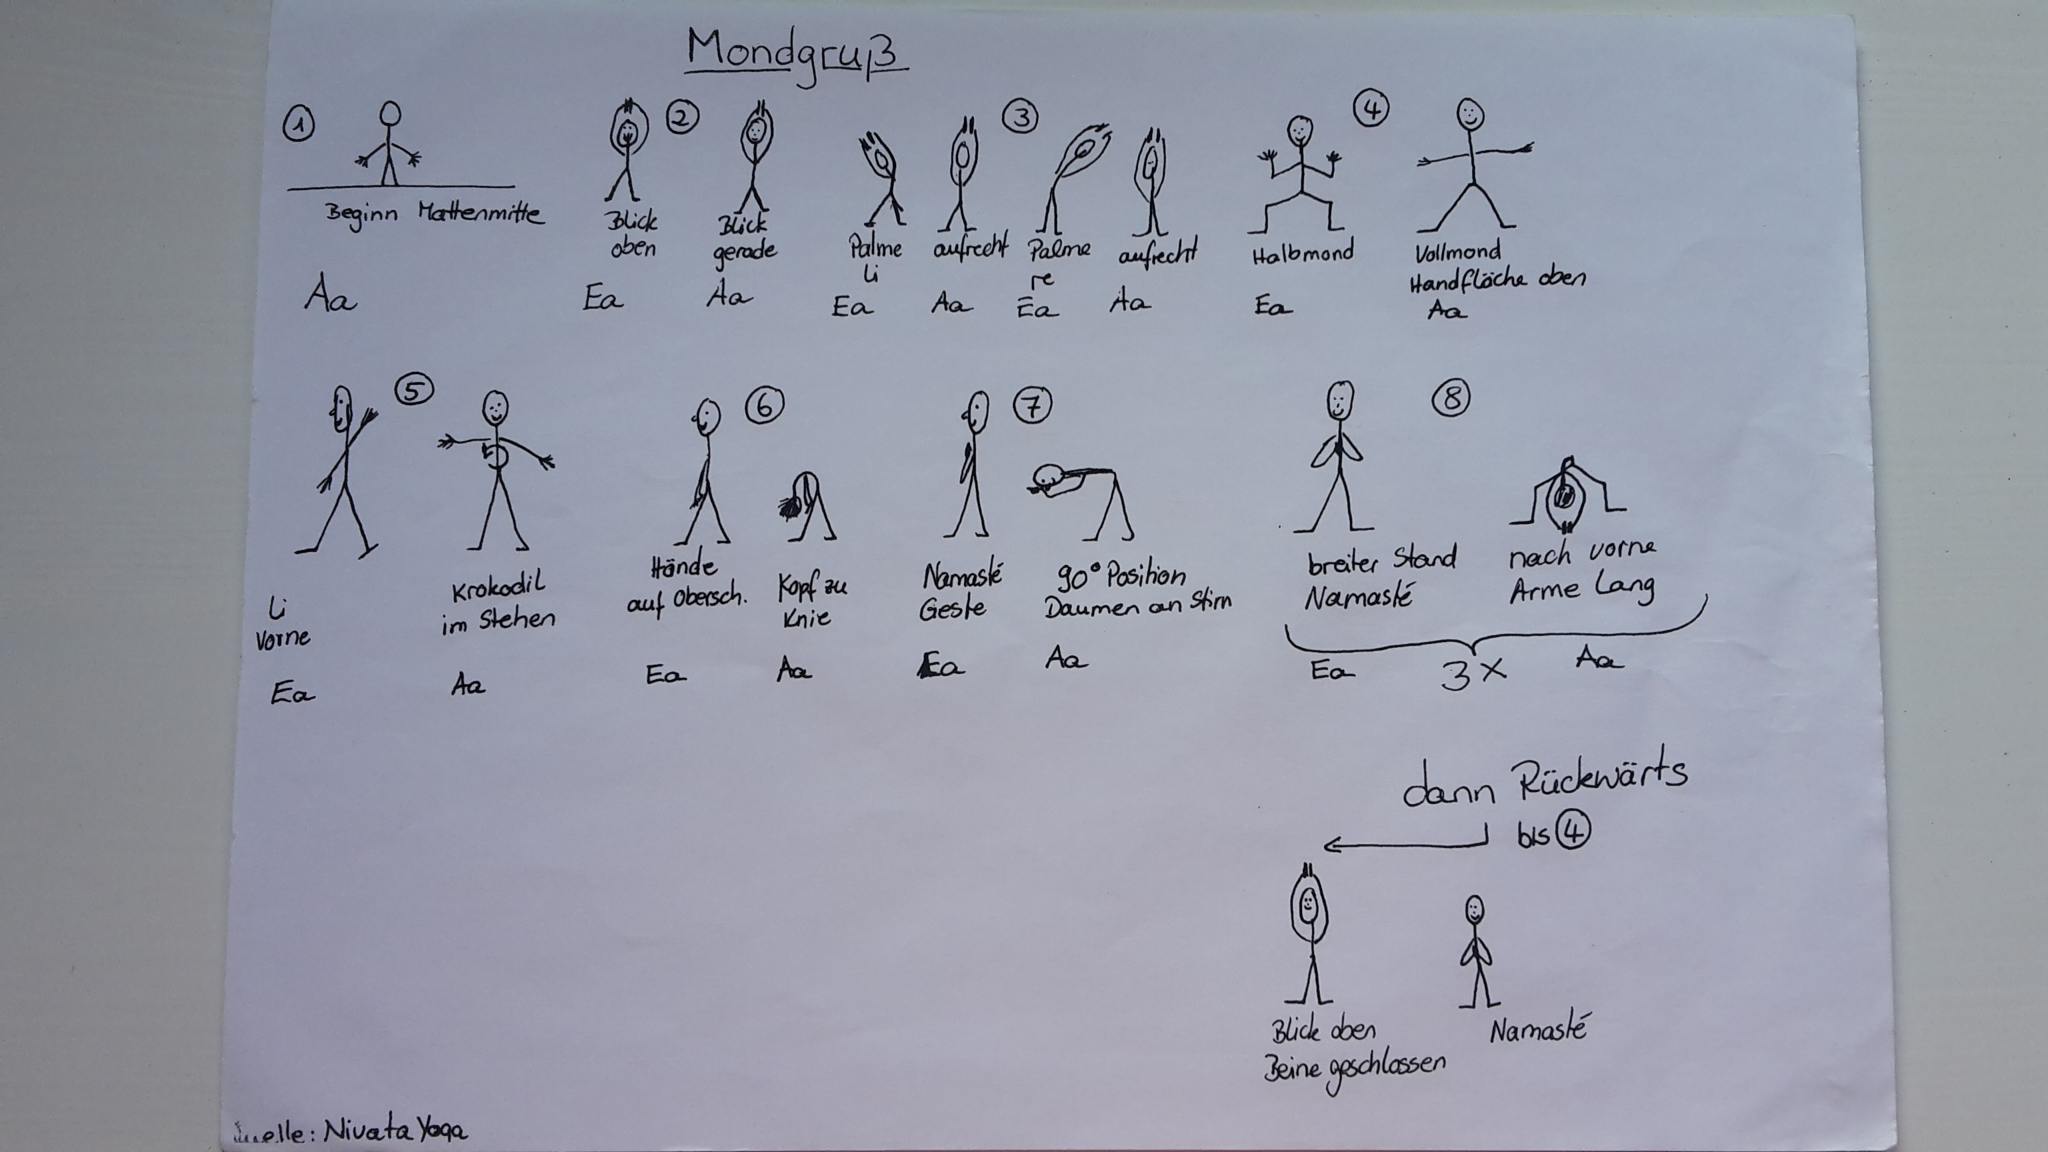 Mondgruß
1
Beginn Mattenmitte
Aa
2
Blick
oben
Ea
Blick
gerade
Aa
3
Palme
li
Ea
aufrecht
Aa
Palme
re
Ea
aufrecht
Aa
4
Halbmond
Ea
Vollmond
Handfläche oben
Aa
5
Li
Vorne
Ea
Krokodil
im Stehen
Aa
6
Hände
auf Obersch.
Ea
Kopf zu
Knie
Aa
7
Namasté
Geste
Ea
90° Position
Daumen an Stirn
Aa
8
breiter Stand
Namasté
Ea
nach vorne
Arme Lang
Aa
3 x
dann Rückwärts
bis 4
Blick oben
Beine geschlossen
Namasté
Quelle: Nivata Yoga